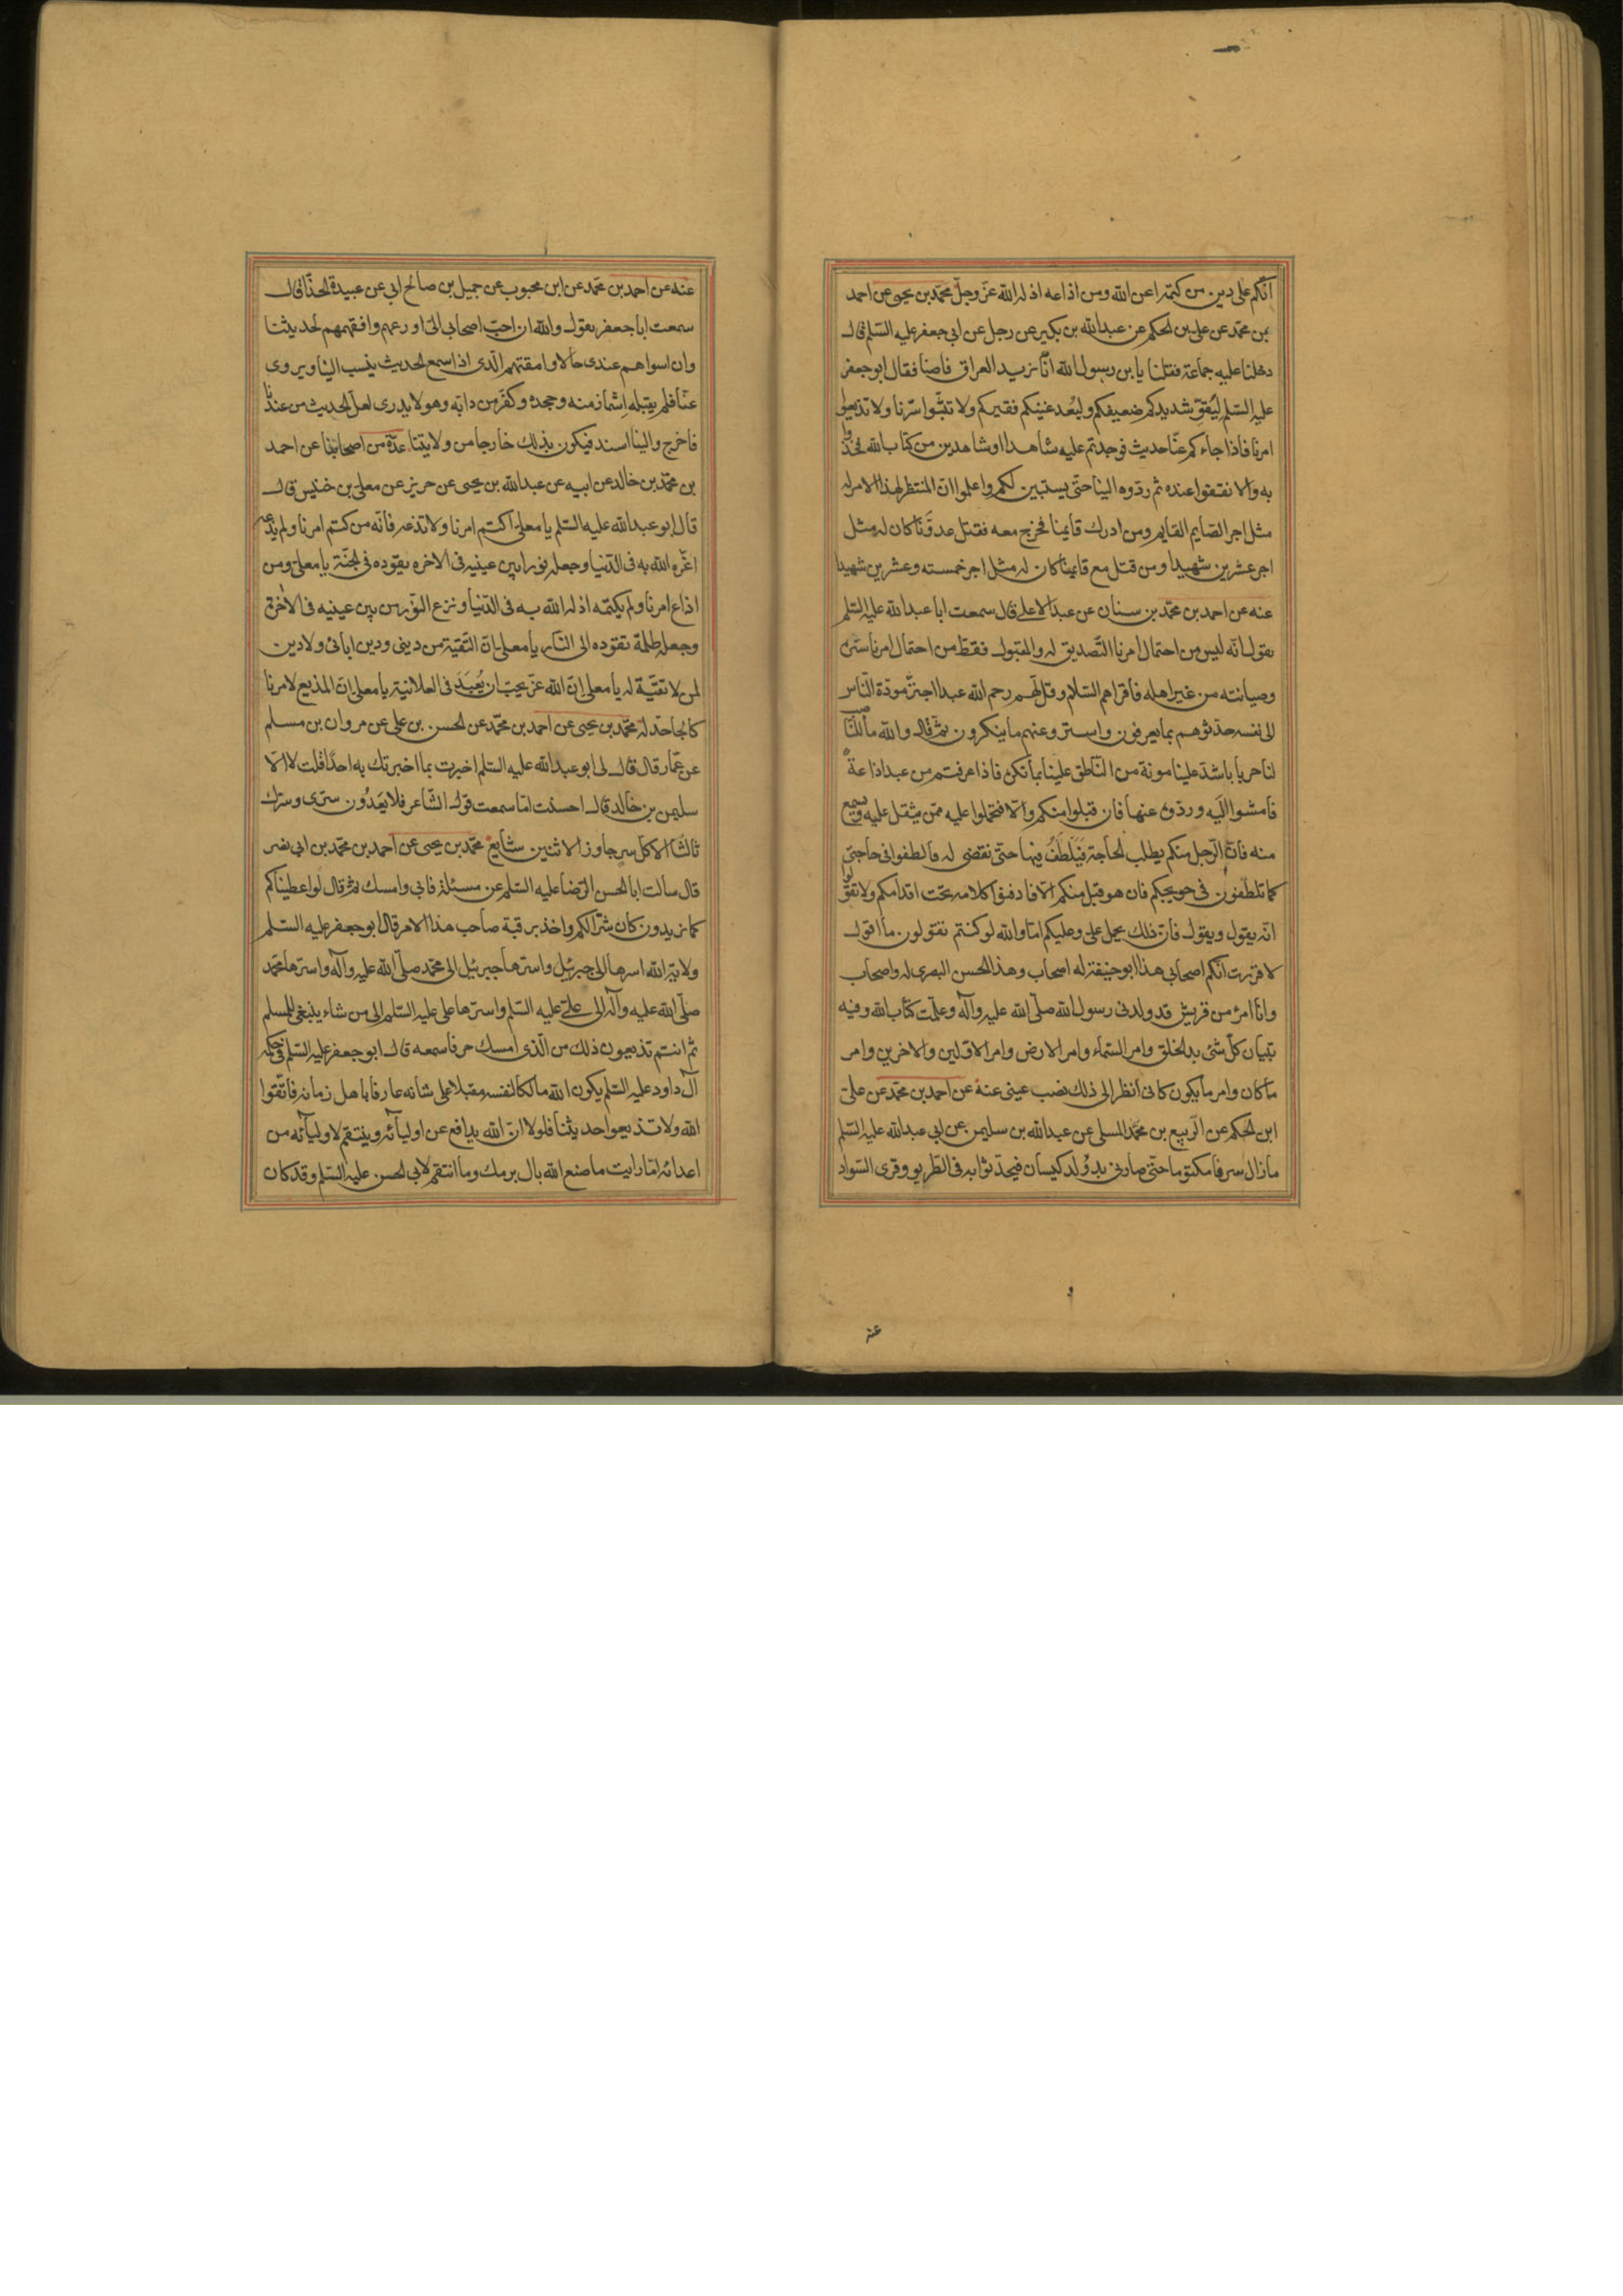 انكم على دين من كتمه اعزه الله ومن اذاعه اذله الله عزّ وجلّ محمد بن يحيى عن احمد
بن محمد عن على بن الحكم عن عبدالله بن بكير عن رجل عن ابى جعفر عليه السلم قال
دخلنا عليه جماعة فقلنا يا بن رسول الله انا نريد العراق فاوصنا فقال ابو جعفر
عليه السلم ليقوّ شديدكم ضعيفكم وليُعد غنيكم فقيركم ولا تبثّوا سرّنا ولا تذيعوا
امرنا فاذا جاءكم عنّا حديث فوجدتم عليه شاهدا او شاهدين من كتاب الله فخذوا
به والا فقفوا عنده ثم ردّوه الينا حتى يستبين لكم واعلموا ان المنتظر لهذا الامر له
مثل اجر الصايم القايم ومن ادرك قايمنا فخرج معه فقتل عدوّنا كان له مثل
اجر عشرين شهيدا ومن قتل مع قايمنا كان له مثل اجر خمسته وعشرين شهيدا
عنه عن احمد بن محمد بن سنان عن عبدالاعلى قال سمعت ابا عبدالله عليه السلم
يقول انه ليس من احتمال امرنا التّصديق له والقبول فقط من احتمال امرنا ستره
وصيانته من غير اهله فاقراهم السّلام وقل لهم رحم الله عبدا اجترّ مودّة النّاس
الى نفسه حدّثوهم بما يعرفون واستروا عنهم ما ينكرون ثمّ قال والله ما النّاصب
لنا حربا باشدّ علينا مونة من النّاطق علينا بما نكره فاذا عرفتم من عبد اذاعةً
فامشوا اليه وردّوه عنها فان قبلوا منكم والّا فتحملوا عليه ممّن يثقل عليه ويسمع
منه فان الرّجل منكم يطلب الحاجة فيَلطَفُ فيها حتى تقضى له فالطفوا فى حاجتى
كما تلطفون فى حويجكم فان هو قبل منكم والّا فادفنوا كلامه تحت اقدامكم ولا تقولوا
انه يقول ويقول فانّ ذلك يحمل علىّ وعليكم امّا والله لو كنتم تقولون ما اقول
لاقررت انكم اصحابى هذا ابو حنيفة له اصحاب وهذا الحسن البصرى له واصحاب
وانا امرؤ من قريش قد ولدنى رسول الله صلّى الله عليه وآله وعلّمت كتاب الله وفيه
تبيان كلّ شئ بدء الخلق وامر السّماء وامر الارض وامر الاوّلين والاخرين وامر
ما كان وامر ما يكون كانى انظر الى ذلك نصب عينى عنه عن احمد بن محمد عن علىّ
ابن الحكم عن الرّبيع بن محمّد المسلى عن عبدالله بن سليمن عن ابى عبدالله عليه السّلم
ما زال سرنا مكتوما حتّى صار فى يد وُلد كيسان فتحدّثوا به فى الطّريق وقرى السّواد
عنه
عنه عن احمد بن محمد عن ابن محبوب عن جميل بن صالح ابى عن عبيدة الحذّا قال
سمعت ابا جعفر يقول والله ان احبّ اصحابى الىّ اورعهم وافقههم لحديثنا
وان اسواهم عندى حالا وامقتهم الّذى اذا سمع الحديث ينسب الينا ويروى
عنّا فلم يقبله اشماز منه وجحده وكفّر من دان به وهو لا يدرى لعل الحديث من عندنا
فاخرج والينا اسند فيكون بذلك خارجا من ولايتنا عدّة من اصحابنا عن احمد
بن محمّد بن خالد عن ابيه عن عبدالله بن يحيى عن حريز عن معلى بن خنيس قال
قال ابو عبدالله عليه السّلم يا معلى اكتم امرنا ولا تذعه فانّه من كتم امرنا ولم يذعه
اعزّه الله به فى الدّنيا وجعله نورا بين عينيه فى الاخره يقوده فى الجنّة يا معلى ومن
اذاع امرنا ولم يكتمه اذله الله به فى الدّنيا ونزع النّور من بين عينيه فى الاخرة
وجعله ظلمة تقوده الى النّار يا معلى ان التّقيّة من دينى ودين ابائى ولا دين
لمن لا تقيّة له يا معلى انّ الله عزّ يحبّ ان يُعبَد فى العلانية يا معلى انّ المذيع لامرنا
كالجاحد له محمّد بن يحيى عن احمد بن محمّد عن الحسن بن على عن مروان بن مسلم
عن عمّار قال قال لى ابو عبدالله عليه السّلم اخبرت بما اخبرتك به احدًا قلت لا الّا
سليمن بن خالد قال احسنت امّا سمعت قول الشّاعر فلا يَعدُون سرّى وسرّك
ثالثًا الا كل سرّ جاوز الاثنين شايع محمّد بن يحيى عن احمد بن محمّد بن ابى نصر
قال سالت ابا الحسن الرّضا عليه السّلم عن مسئلة فابى وامسك ثمّ قال لو اعطيناكم
كما تريدون كان شرّا لكم واخذ برقبة صاحب هذا الامر قال ابو جعفر عليه السّلم
ولاية الله اسرها الى جبرئيل واسرّها جبرئيل الى محمّد صلّى الله عليه وآله واسرّها محمّد
صلّى الله عليه وآله الى علىّ عليه السّلم واسرّها على عليه السّلم الى من شاء ينبغى للمسلم
ثم انتم تذيعون ذلك من الّذى امسك حرفا سمعه قال ابو جعفر عليه السّلم فى حكمة
آل داود عليه السّلم يكون الله مالكا لنفسه مقبلا على شانه عارفا باهل زمانه فاتّقوا
الله ولا تذيعوا حديثنا فلولا ان الله يدافع عن اوليآئه وينتقم لاوليآئه من
اعدائه امّا رايت ما صنع الله بال برمك وما انتقم لابى الحسن عليه السّلم وقد كان